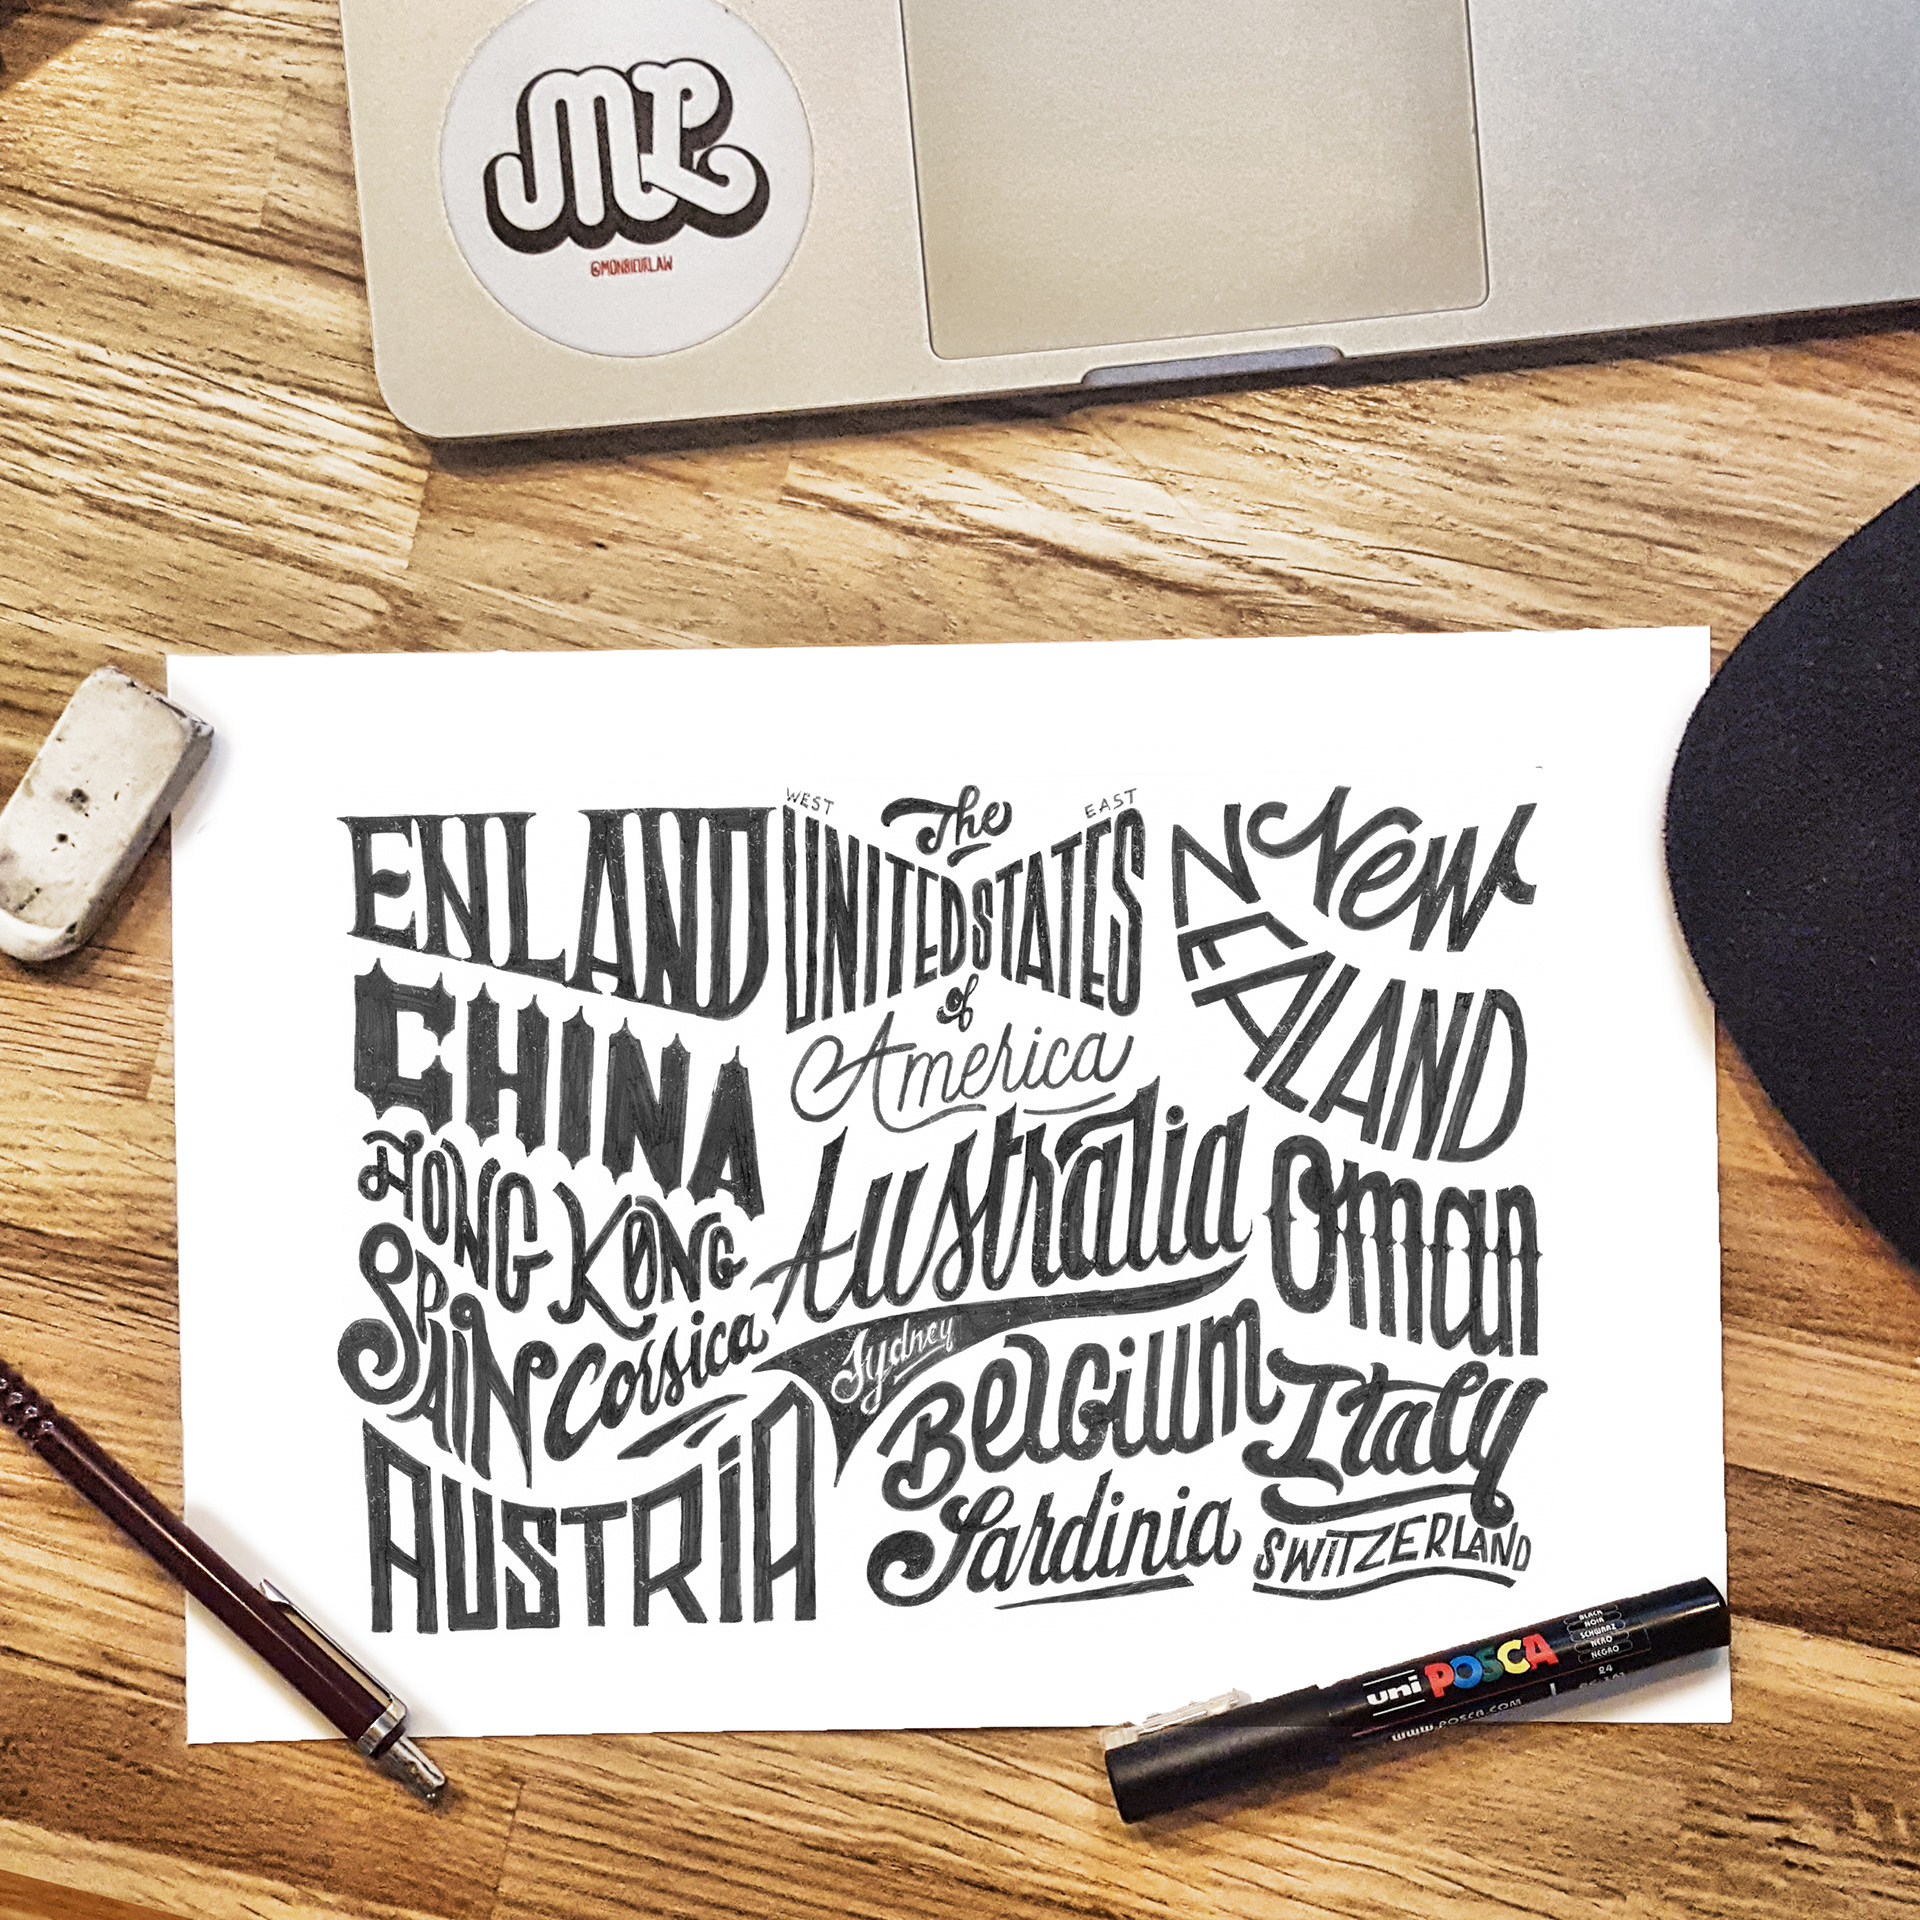 ML
@MONSIEURLAW
ENLAND
WEST
EAST
The
UNITED STATES
of
America
NEW
ZEALAND
CHINA
HONG KONG
Australia
Sydney
Oman
SPAIN
Corsica
Belgium
Italy
AUSTRIA
Sardinia
SWITZERLAND
uni POSCA
BLACK
NOIR
SCHWARZ
NERO
NEGRO
24
www.POSCA.COM